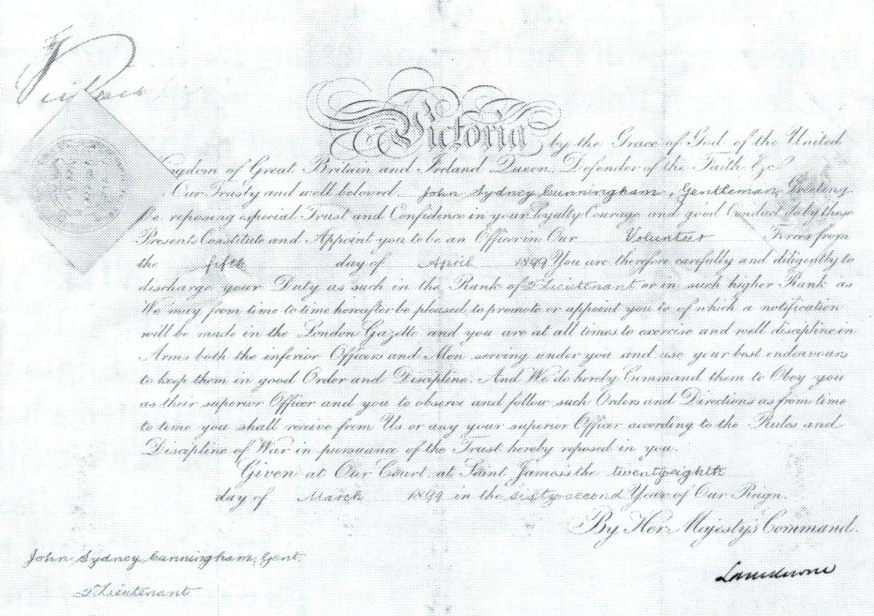 Victoria by the Grace of God of the United
Kingdom of Great Britain and Ireland Queen, Defender of the Faith, &c
Our Trusty and well beloved John Sydney Cunningham, Gentleman, Greeting.
We, reposing especial Trust and Confidence in your Loyalty Courage and good Conduct, do by these
Presents Constitute and Appoint you to be an Officer in Our Volunteer Forces from
the fifth day of April 1899 You are therefore carefully and diligently to
discharge your Duty as such in the Rank of 2d Lieutenant or in such higher Rank as
We may from time to time hereafter be pleased to promote or appoint you to of which a notification
will be made in the London Gazette and you are at all times to exercise and well discipline in
Arms both the inferior Officers and Men serving under you and use your best endeavours
to keep them in good Order and Discipline. And We do hereby Command them to Obey you
as their superior Officer and you to observe and follow such Orders and Directions as from time
to time you shall receive from Us or any your superior Officer according to the Rules and
Discipline of War in pursuance of the Trust hereby reposed in you.
Given at Our Court, at Saint James's the twenty eighth
day of March 1899 in the sixty second Year of Our Reign.
By Her Majesty's Command.
John Sydney Cunningham, Gent.
2d Lieutenant
Lansdowne